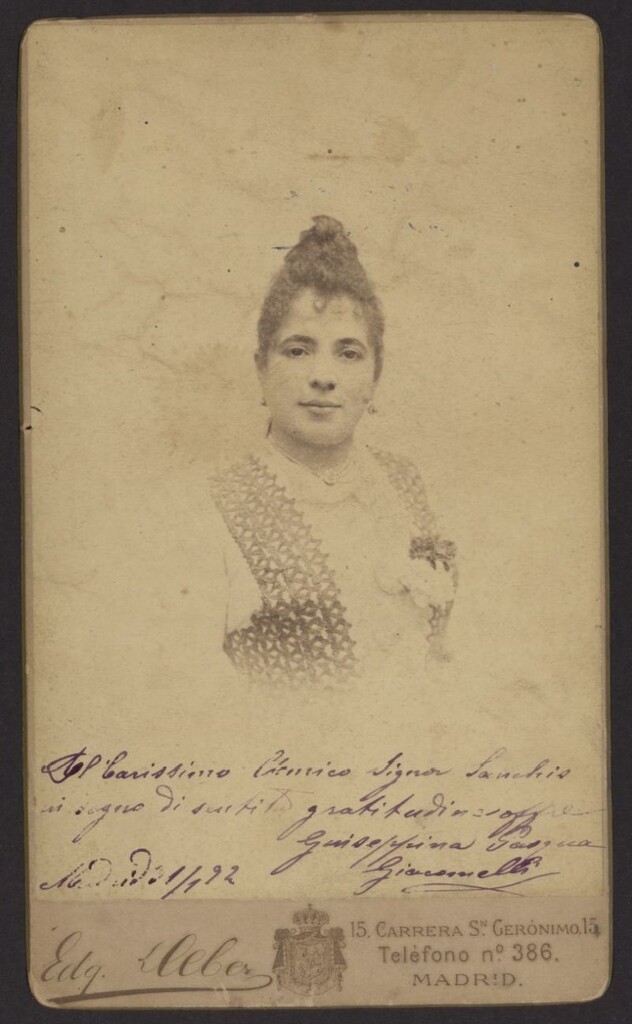 Al Carissimo Cronico Signor Sanchis
in segno di sentita gratitudine offre
Guiseppina Pasqua
Giacomelli
Madrid 31/1 92
Edg. Debas
15, CARRERA Sⁿ GERÓNIMO, 15,
Teléfono nº 386.
MADRID.